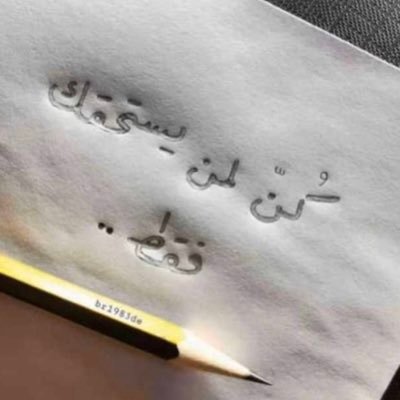 كُنّ لمن يستحقك
فقط ..
br1983de